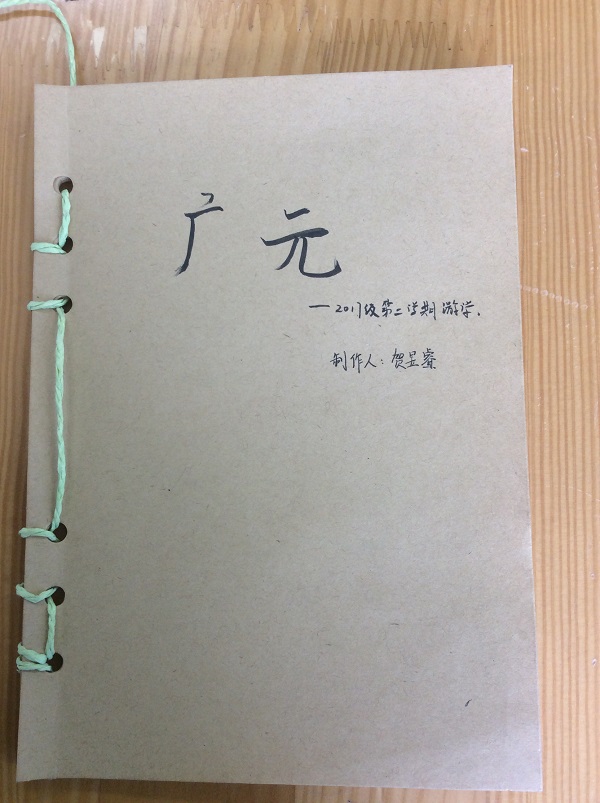 广元
—2017级第二学期游学.
制作人:贺昱睿